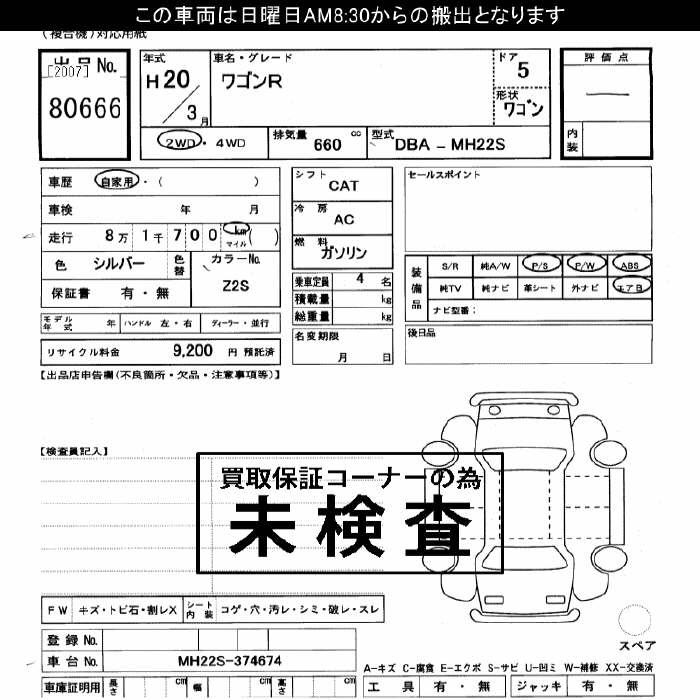 この車両は日曜日AM8:30からの搬出となります
(複合機)対応用紙
出品No.
[2007]
80666
年式
H20
/3月
車名・グレード
ワゴンR
ドア
5
形状
ワゴン
評価点
内装
2WD・4WD
排気量 660 cc
型式 DBA - MH22S
車歴 自家用・( )
車検 年 月
走行 8万1千700 km マイル ( )
色 シルバー 色替
カラーNo.
Z2S
保証書 有・無
モデル年式 年 ハンドル 左・右 ディーラー・並行
リサイクル料金 9,200 円 預託済
シフト
CAT
冷房
AC
燃料
ガソリン
乗車定員 4 名
積載量 kg
総重量 kg
名変期限
月 日
セールスポイント
装備品
S/R 純A/W P/S P/W ABS
純TV 純ナビ 革シート 外ナビ エアB
ナビ型番:
後日品
【出品店申告欄(不良箇所・欠品・注意事項等)】
【検査員記入】
買取保証コーナーの為
未検査
FW キズ・トビ石・割レX シート内装 コゲ・穴・汚レ・シミ・破レ・スレ
登録No.
車台No. MH22S-374674
車庫証明用 長さ cm 幅 cm 高さ cm
スペア
A-キズ C-腐食 E-エクボ S-サビ U-凹ミ W-補修 XX-交換済
工具 有・無 ジャッキ 有・無